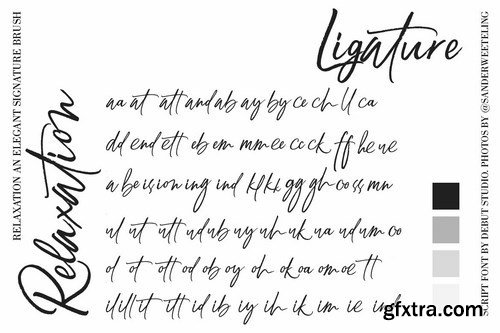 RELAXATION AN ELEGANT SIGNATURE BRUSH
Relaxation
Ligature
aa at att and ab ay by ce ch ll ca
dd end ett eb em mm ee co ck ff he ue
a be is ion ing ind kl kk gg gh co ss mn
ul ut utt ud ub uy uh uk ua ud um co
ol ot ott od ob oy oh ok oa om oe tt
il ill it itt id ib iy ih ik im ie ink
SCRIPT FONT BY DEBUT STUDIO. PHOTOS BY @SANDERWEETELING
gfxtra.com